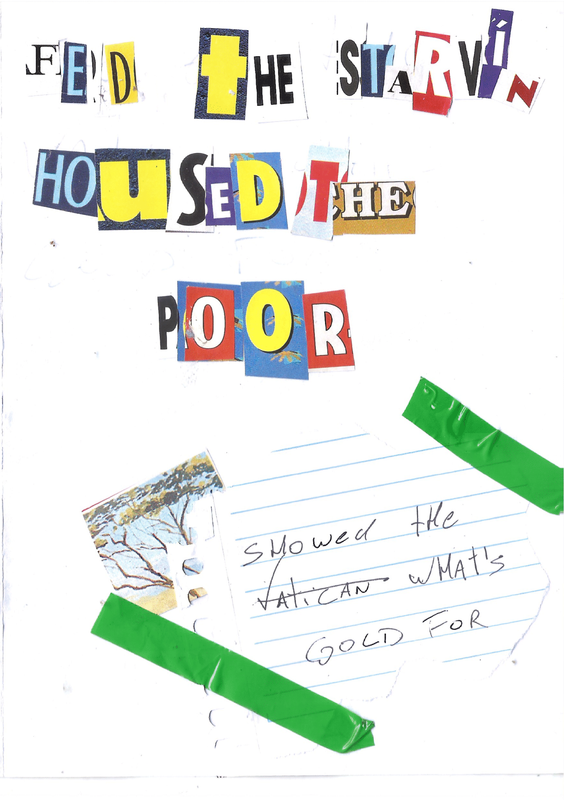 FED THE STARVíN
HOUSED THE
POOR
SHOWED tHE
VATICAN WHAT'S
GOLD FOR